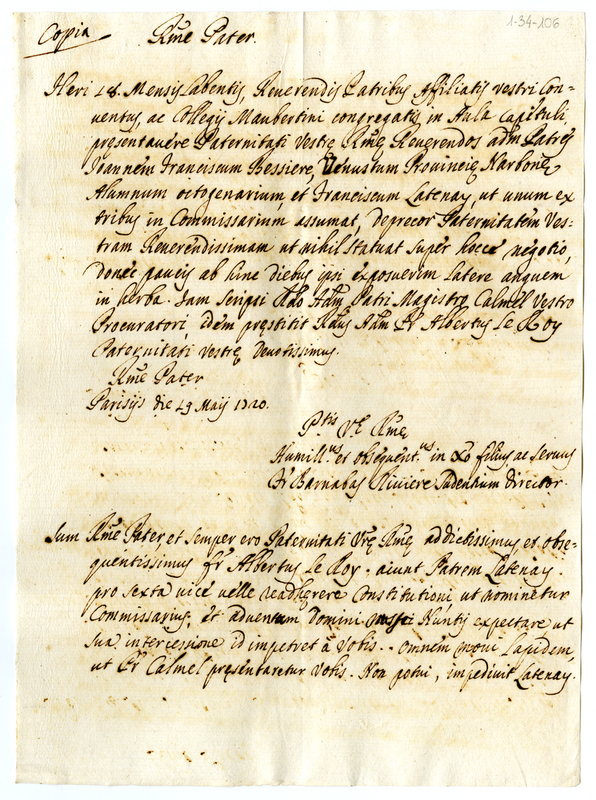 1-34-106
Copia Rm̃e Pater.
Heri 28. Mensis Labentis, Reverendis Patribus Affiliatis vestri Con=
ventus, ac Collegij Maubertini congregatis in Aula Capituli,
presentavere Paternitati Vestrę Rm̃ę Reverendos adm̃ Patres
Joannem Franciscum Bessiere, Venustum Provincię Narbonę
Alumnum octogenarium, et Franciscum Latenay, ut unum ex
tribus in Commissarium assumat, deprecor Paternitatem Ves=
tram Reverendissimam ut nihil statuat super hocce negotio,
donec paucis ab hinc diebus ipsi exposuerim latere anguem
in herba. Jam scripsi Rdo Adm̃ Patri Magistro Calmel Vestro
Procuratori, idem pręstitit Rdus Adm̃ Fr Albertus Le Roy
Paternitati Vestrę Devotissimus.
Rm̃e Pater
Parisijs die 29 Maij 1720.
Ptis Vę Rm̃ę
Humill.us et obsequent.us in Xo filius ac servus
Fr Barnabas Riviere Studentium Director.
Sum Rm̃e Pater et semper ero Paternitati Vrę Rm̃ę addictissimus, et obse=
quentissimus fr Albertus Le Roy. aiunt Patrem Latenay
pro sexta vice velle readhęrere Constitutioni, ut nominetur
Commissarius, et adventum Domini Nuntij expectare ut
sua intercessione id impetret à Vobis. omnem movi Lapidem,
ut Fr Calmel pręsentaretur Vobis. Non potui, impedivit Latenay.